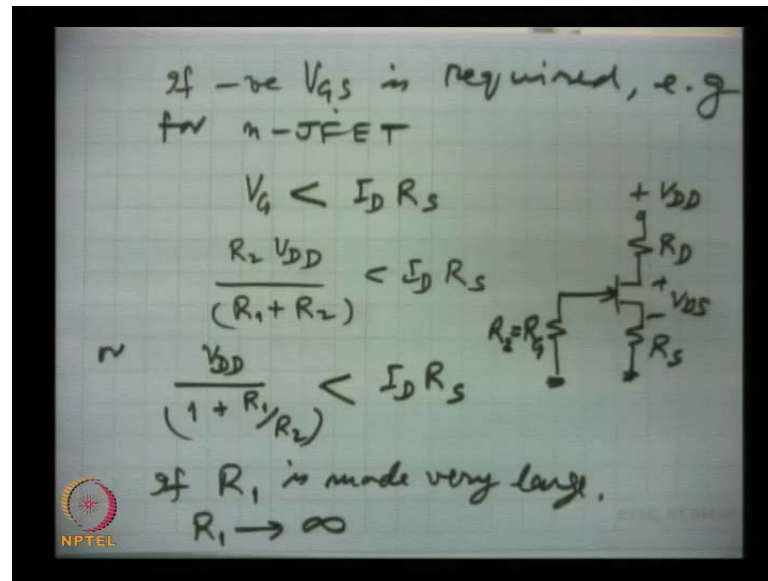 If -ve V_GS is required, e.g
for n-JFET
V_G < I_D R_S
R_2 V_DD / (R_1 + R_2) < I_D R_S
or V_DD / (1 + R_1/R_2) < I_D R_S
If R_1 is made very large.
R_1 → ∞
+ V_DD
R_D
+
V_DS
-
R_2 = R_G
R_S
NPTEL